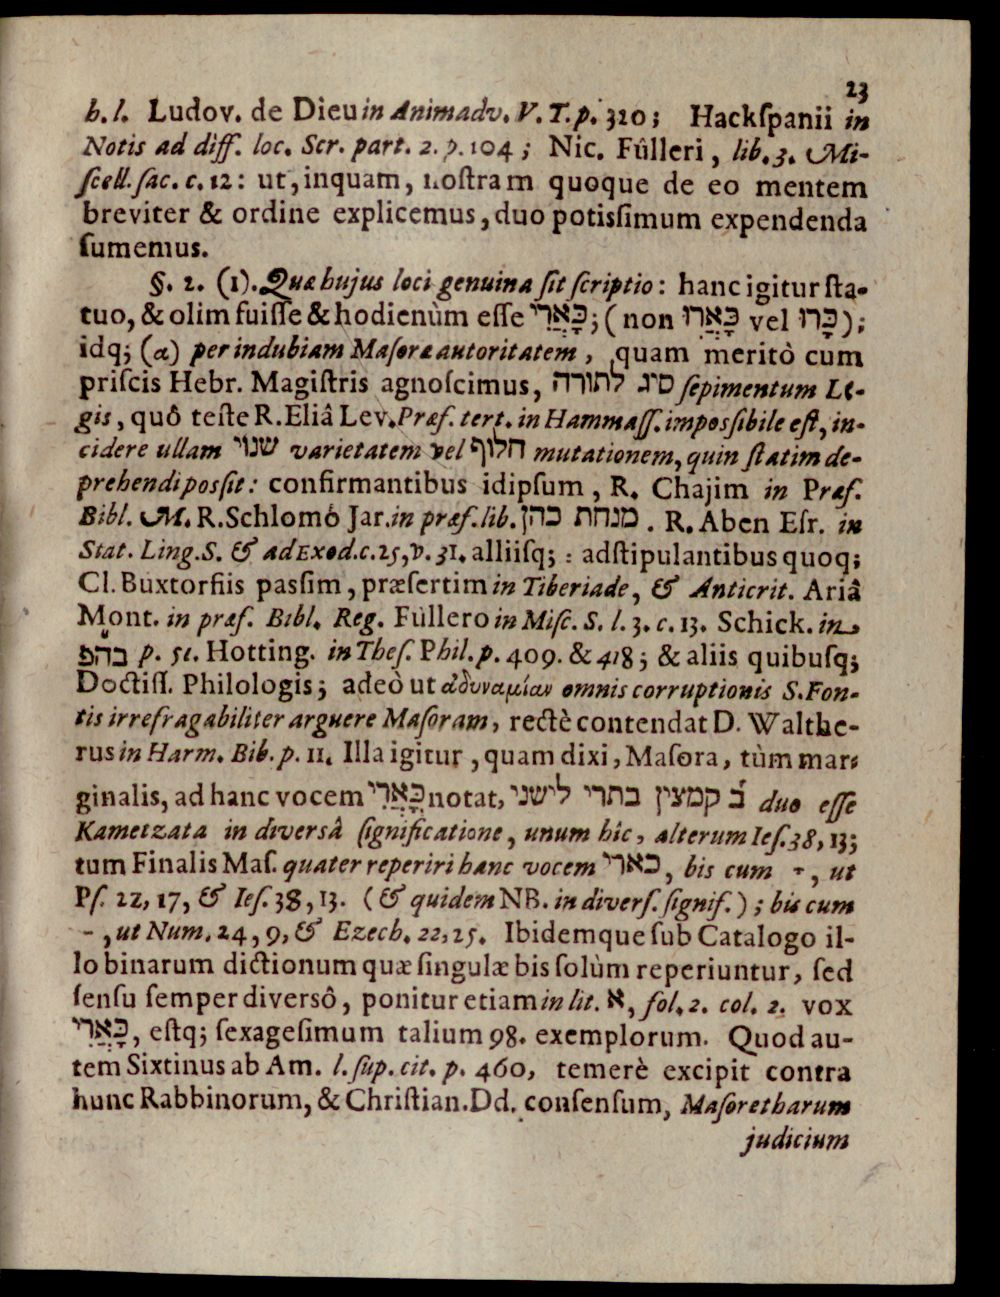 23
h. l. Ludov. de Dieu in Animadv. V. T. p. 320; Hackſpanii in
Notis ad diff. loc. Scr. part. 2. p. 104; Nic. Fûlleri, lib. 3. Mi-
ſcell. ſac. c. 12: ut, inquam, noſtram quoque de eo mentem
breviter & ordine explicemus, duo potisſimum expendenda
ſumemus.
§. 2. (1). Quæ hujus loci genuina ſit ſcriptio: hanc igitur ſta-
tuo, & olim fuiſſe & hodienùm eſſe כָּאֲרִי; (non כָּאֲרוּ vel כָּרוּ);
idq; (α) per indubiam Maſoræ autoritatem, quam meritò cum
priſcis Hebr. Magiſtris agnoſcimus, סיג לתורה ſepimentum Le-
gis, quô teſte R. Eliâ Lev. Præf. tert. in Hammaſſ. imposſibile eſt, in-
cidere ullam שנוי varietatem vel חלוף mutationem, quin ſtatim de-
prehendi posſit: confirmantibus idipſum, R. Chajim in Præf.
Bibl. M. R. Schlomô Jar. in præf. lib. מנחת כהן. R. Aben Eſr. in
Stat. Ling. S. & ad Exod. c. 25, v. 31. alliiſq; : adſtipulantibus quoq;
Cl. Buxtorfiis pasſim, præſertim in Tiberiade, & Anticrit. Ariâ
Mont. in præf. Bibl. Reg. Fûllero in Miſc. S. l. 3. c. 13. Schick. in
בהפ p. 51. Hotting. in Theſ. Phil. p. 409. & 418; & aliis quibuſq;
Doctiſſ. Philologis; adeò ut ἀδυναμίαν omnis corruptionis S. Fon-
tis irrefragabiliter arguere Maſoram, rectè contendat D. Walthe-
rus in Harm. Bib. p. 11. Illa igitur, quam dixi, Maſora, tùm mar-
ginalis, ad hanc vocem כָּאֲרִי notat, ב̇ קמצין בתרי לישני duo eſſe
Kametzata in diversâ ſignificatione, unum hîc, alterum Ieſ. 38, 13;
tum Finalis Maſ. quater reperiri hanc vocem כארי, bis cum ָ, ut
Pſ. 22, 17, & Ieſ. 38, 13. (& quidem NB. in diverſ. ſignif.); bis cum
-, ut Num. 24, 9, & Ezech. 22, 25. Ibidemque ſub Catalogo il-
lo binarum dictionum quæ ſingulæ bis ſolùm reperiuntur, ſed
ſenſu ſemper diversô, ponitur etiam in lit. א, fol. 2. col. 2. vox
כָּאֲרִי, eſtq; ſexageſimum talium 98. exemplorum. Quod au-
tem Sixtinus ab Am. l. ſup. cit. p. 460, temerè excipit contra
hunc Rabbinorum, & Chriſtian. Dd. conſenſum, Maſoretharum
judicium